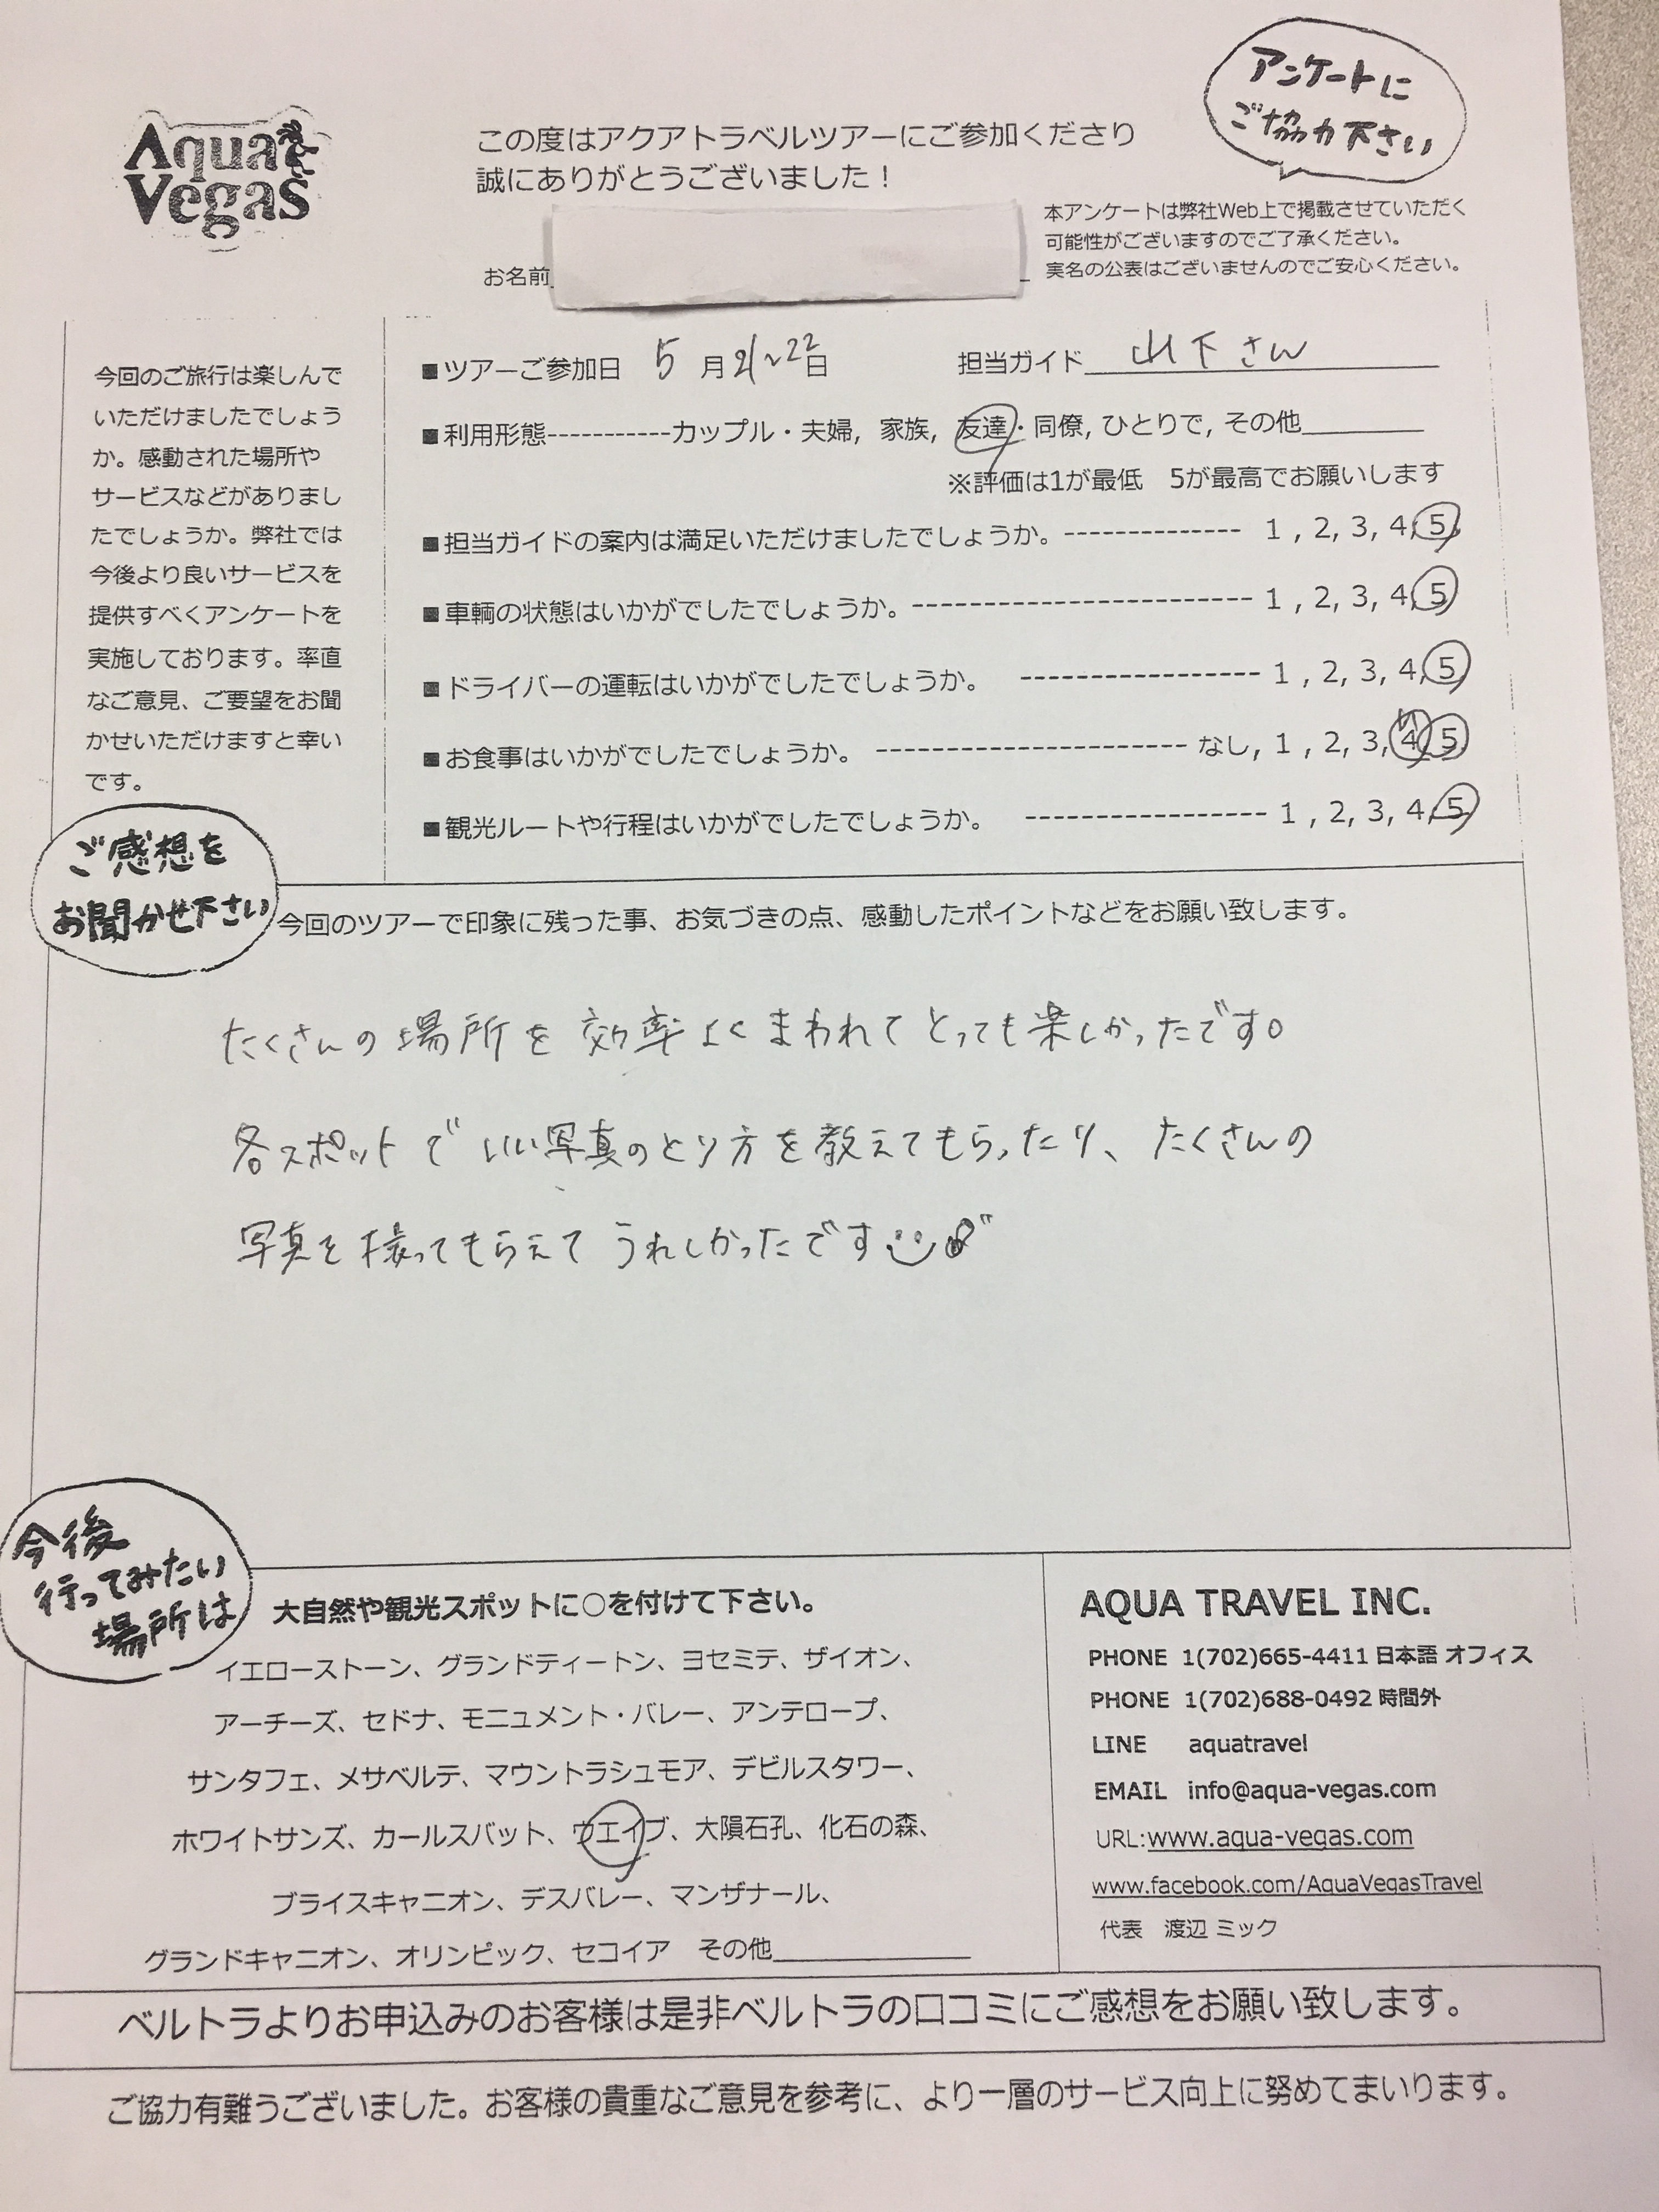 アンケートに
ご協力下さい
Aqua
Vegas
この度はアクアトラベルツアーにご参加くださり
誠にありがとうございました！
お名前
本アンケートは弊社Web上で掲載させていただく
可能性がございますのでご了承ください。
実名の公表はございませんのでご安心ください。
今回のご旅行は楽しんで
いただけましたでしょう
か。感動された場所や
サービスなどがありまし
たでしょうか。弊社では
今後より良いサービスを
提供すべくアンケートを
実施しております。率直
なご意見、ご要望をお聞
かせいただけますと幸い
です。
■ツアーご参加日 5月21~22日 担当ガイド 山下さん
■利用形態-----------カップル・夫婦, 家族, 友達・同僚, ひとりで, その他
※評価は1が最低 5が最高でお願いします
■担当ガイドの案内は満足いただけましたでしょうか。------------- 1 , 2, 3, 4, 5
■車輌の状態はいかがでしたでしょうか。------------------------- 1 , 2, 3, 4, 5
■ドライバーの運転はいかがでしたでしょうか。 ----------------- 1 , 2, 3, 4, 5
■お食事はいかがでしたでしょうか。 ----------------------- なし, 1 , 2, 3, 4, 5
■観光ルートや行程はいかがでしたでしょうか。 ----------------- 1 , 2, 3, 4, 5
ご感想を
お聞かせ下さい
今回のツアーで印象に残った事、お気づきの点、感動したポイントなどをお願い致します。
たくさんの場所を効率よくまわれてとっても楽しかったです。
各スポットでいい写真のとり方を教えてもらったり、たくさんの
写真を撮ってもらえてうれしかったです
今後
行ってみたい
場所は
大自然や観光スポットに○を付けて下さい。
イエローストーン、グランドティートン、ヨセミテ、ザイオン、
アーチーズ、セドナ、モニュメント・バレー、アンテロープ、
サンタフェ、メサベルデ、マウントラシュモア、デビルスタワー、
ホワイトサンズ、カールスバット、ウエイブ、大隕石孔、化石の森、
ブライスキャニオン、デスバレー、マンザナール、
グランドキャニオン、オリンピック、セコイア その他
AQUA TRAVEL INC.
PHONE 1(702)665-4411 日本語 オフィス
PHONE 1(702)688-0492 時間外
LINE aquatravel
EMAIL info@aqua-vegas.com
URL:www.aqua-vegas.com
www.facebook.com/AquaVegasTravel
代表 渡辺 ミック
ベルトラよりお申込みのお客様は是非ベルトラの口コミにご感想をお願い致します。
ご協力有難うございました。お客様の貴重なご意見を参考に、より一層のサービス向上に努めてまいります。